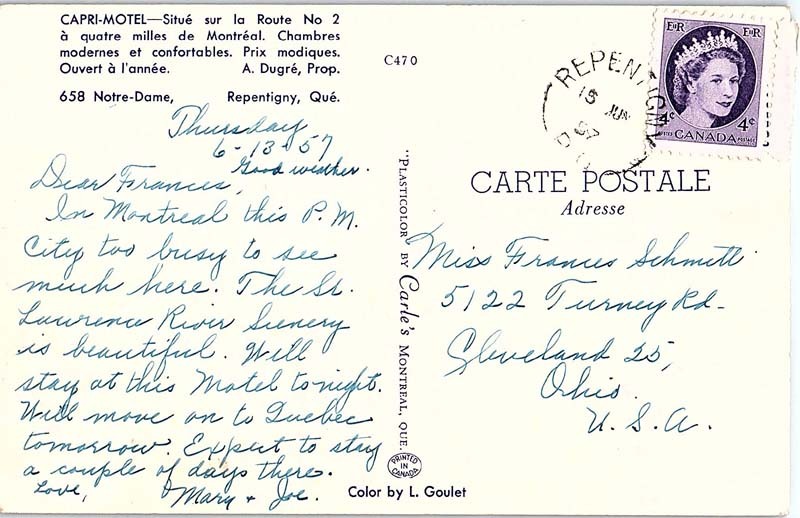 CAPRI-MOTEL—Situé sur la Route No 2
à quatre milles de Montréal. Chambres
modernes et confortables. Prix modiques.
Ouvert à l'année. A. Dugré, Prop.
658 Notre-Dame, Repentigny, Qué.
C470
Thursday
6-13-57
Good weather.
Dear Frances,
In Montreal this P.M.
City too busy to see
much here. The St.
Lawrence River Scenery
is beautiful. Will
stay at this Motel tonight.
Will move on to Quebec
tomorrow. Expect to stay
a couple of days there.
Love,
Mary + Joe.
"PLASTICOLOR BY Carle's MONTREAL, QUE.
PRINTED
IN
CANADA
Color by L. Goulet
REPENTIGNY
15 JUN
57
P Q
EIIR EIIR
4¢ 4¢
POSTES CANADA POSTAGE
CARTE POSTALE
Adresse
Miss Frances Schmitt
5122 Turney Rd-
Cleveland 25,
Ohio.
U.S.A.